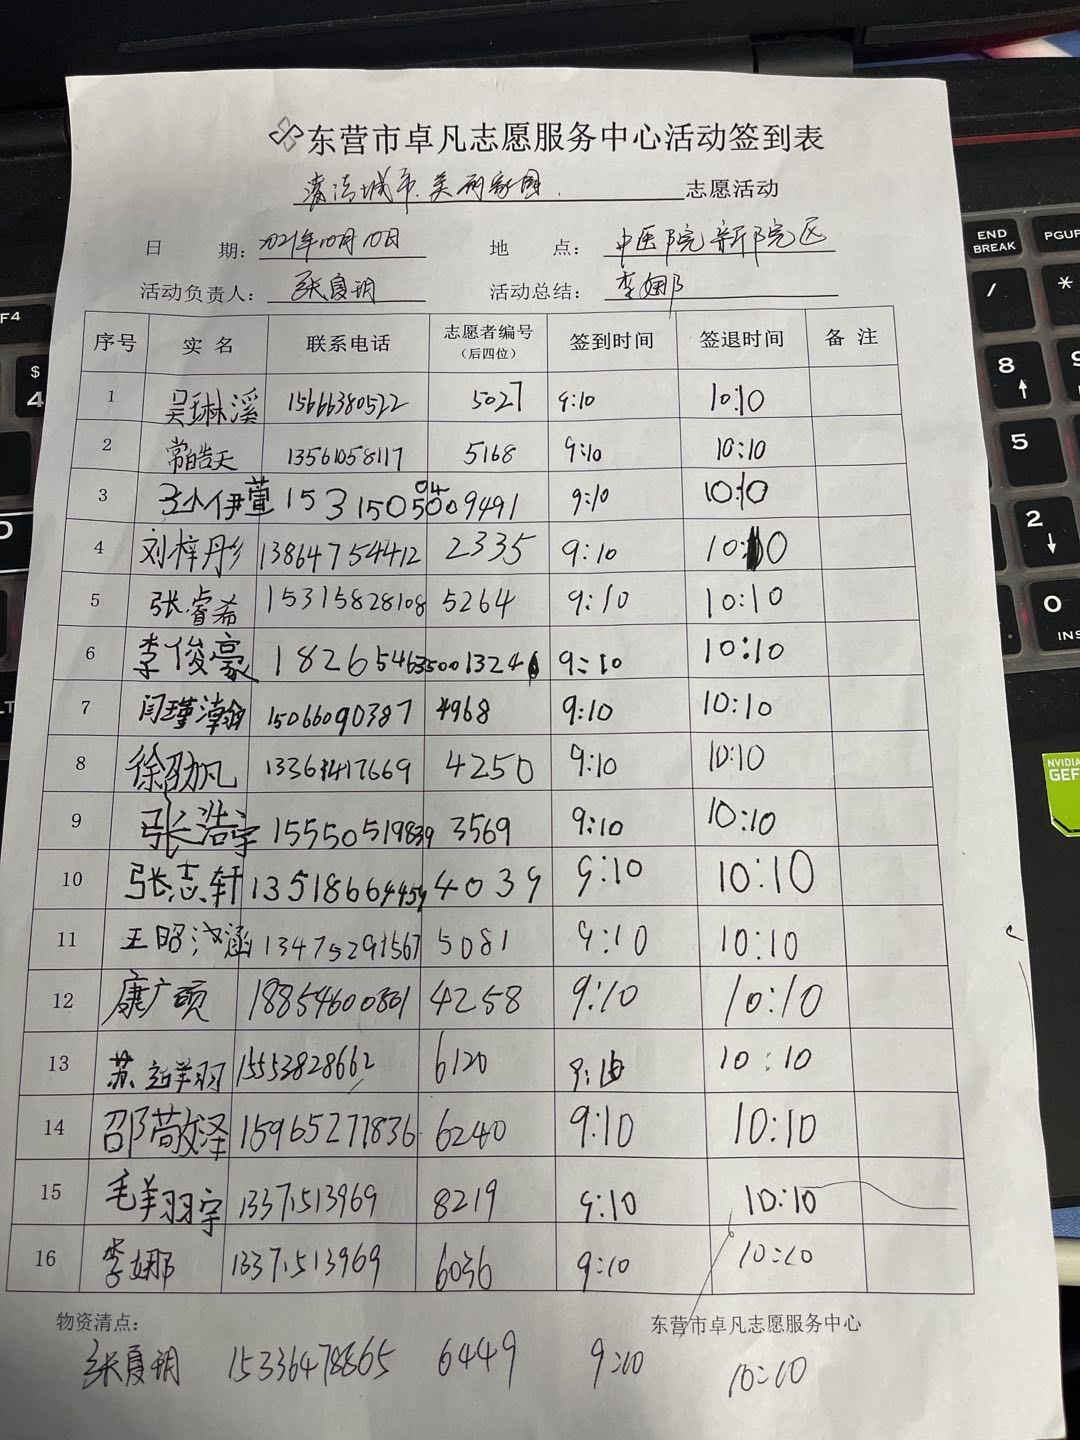 东营市卓凡志愿服务中心活动签到表
清洁城市.美丽家园. 志愿活动
日 期: 2021年10月10日 地 点: 中医院新院区
活动负责人: 张夏玥 活动总结: 李娜
序号 实名 联系电话 志愿者编号(后四位) 签到时间 签退时间 备注
1 吴琳溪 15666380522 5027 9:10 10:10
2 常皓天 13561058117 5168 9:10 10:10
3 9491 9:10 10:10
4 刘梓彤 13864754412 2335 9:10 10:10
5 张睿希 15315828108 5264 9:10 10:10
6 李俊豪 9:10 10:10
7 闫瑾瀚 15066090387 4968 9:10 10:10
8 徐劭凡 4250 9:10 10:10
9 张浩宇 15550519839 3569 9:10 10:10
10 张志轩 13518664459 4039 9:10 10:10
11 王昭涵 13475291567 5081 9:10 10:10
12 康广硕 18854600801 4258 9:10 10:10
13 苏 15553828662 6120 10:10
14 邵敬泽 15965277836 6240 9:10 10:10
15 毛羽宇 13371513969 8219 9:10 10:10
16 李娜 13371513969 6036 9:10 10:10
物资清点: 东营市卓凡志愿服务中心
张夏玥 15336478865 6449 9:10 10:10
F4
$
4
END
BREAK
PGUP
/
*
8
5
2
0
INS
NVIDIA
GEF